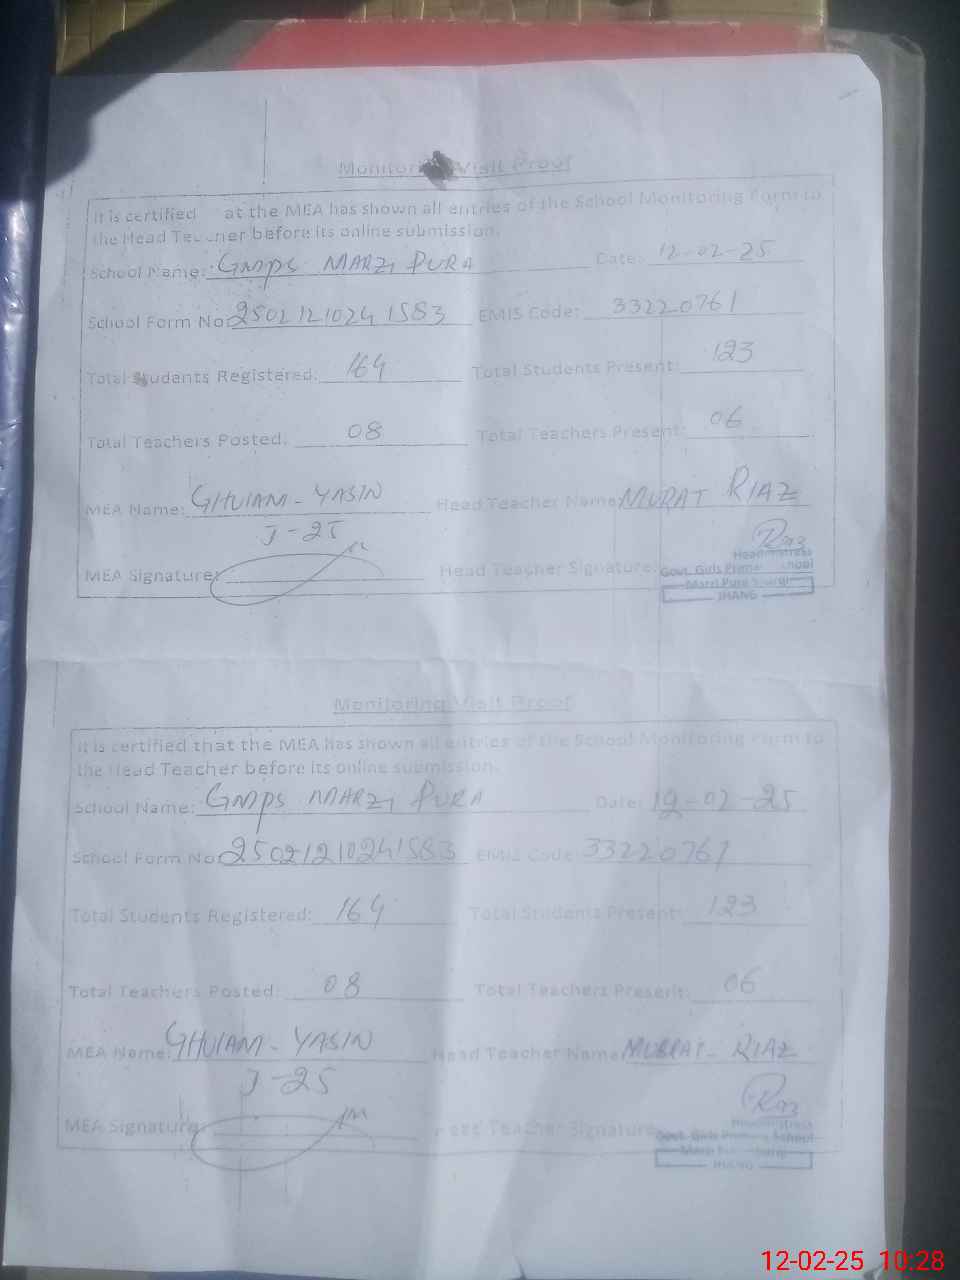 Monitoring Visit Proof
It is certified at the MEA has shown all entries of the School Monitoring Form to
the Head Teacher before its online submission.
School Name: GMPS MARZI PURA Date: 12-02-25
School Form No: 2502121024 1583 EMIS Code: 33220761
Total Students Registered: 164 Total Students Present: 123
Total Teachers Posted: 08 Total Teachers Present: 06
MEA Name: GHULAM - YASIN Head Teacher Name: RIAZ
J-25
MEA Signature: Head Teacher Signature:
Headmistress
Govt. Girls School
JHANG
Monitoring Visit Proof
It is certified that the MEA has shown all entries of the School Monitoring Form to
the Head Teacher before its online submission.
School Name: GMPS MARZI PURA Date: 12-02-25
School Form No: 2502121024 1583 EMIS Code: 33220761
Total Students Registered: 164 Total Students Present: 123
Total Teachers Posted: 08 Total Teachers Present: 06
MEA Name: GHULAM - YASIN Head Teacher Name: RIAZ
J-25
MEA Signature: Head Teacher Signature:
Headmistress
Govt. Girls School
JHANG
12-02-25 10:28